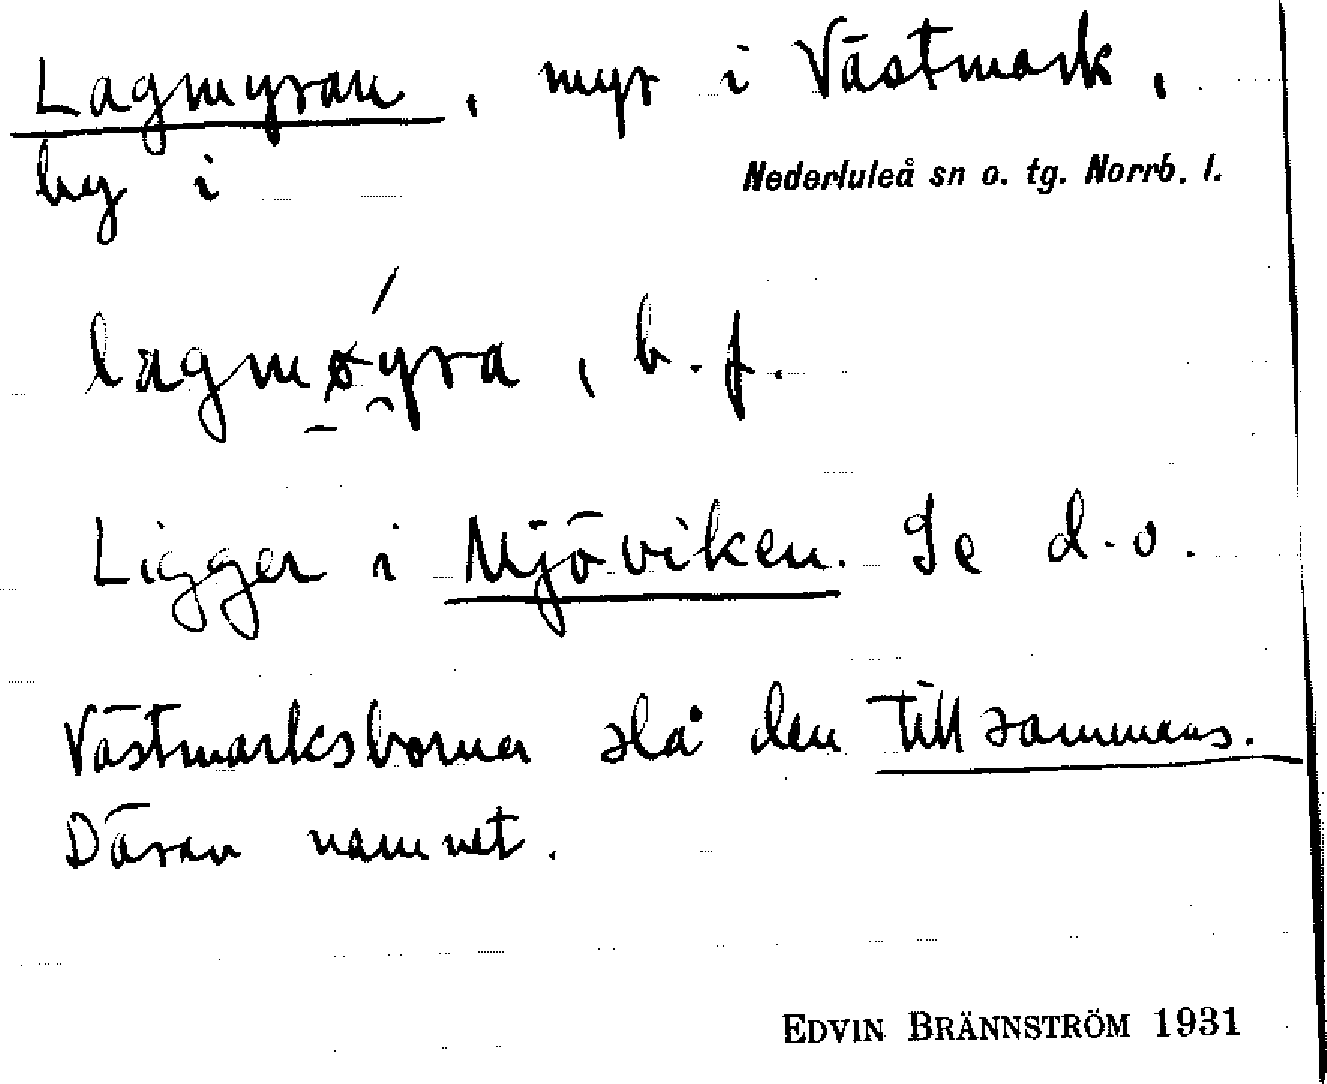 Lagmyran, myr i Västmark,
by i Nederluleå sn o. tg. Norrb. l.
lagmøyra, b.f.
Ligger i Mjöviken. Se d.o.
Västmarksborna slå den tillsammans.
Därav namnet.
EDVIN BRÄNNSTRÖM 1931